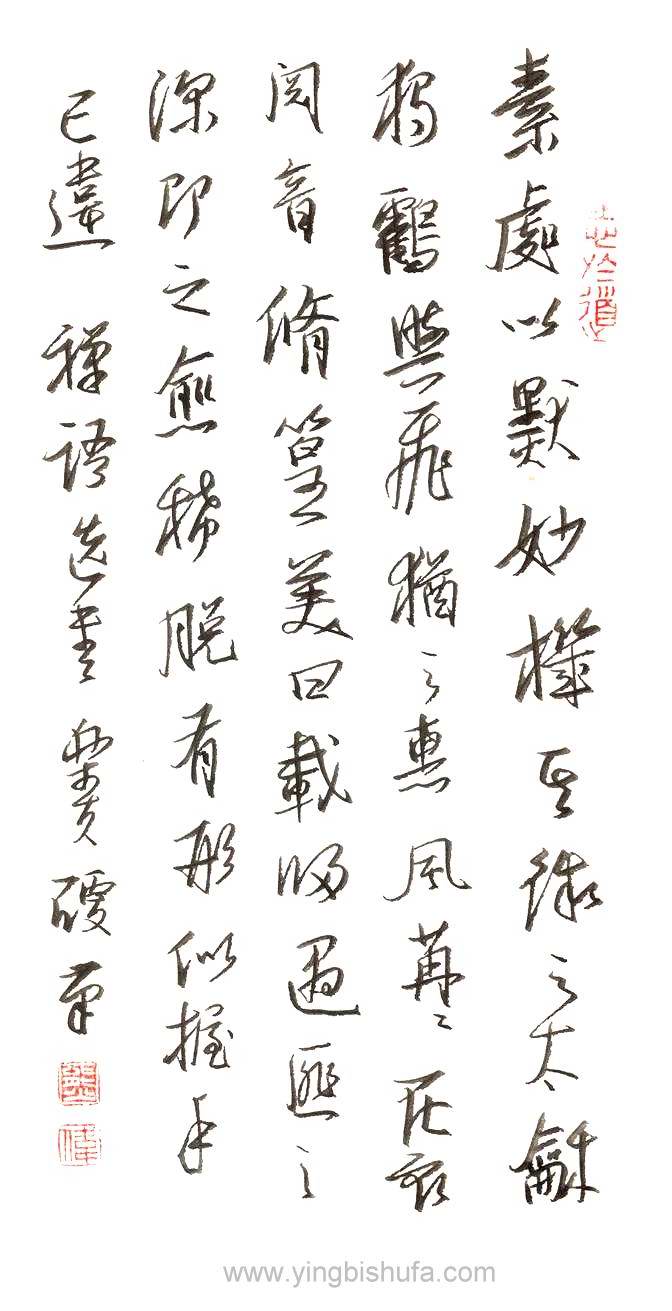 志於道
素處以默妙機其微之太龢
獨鶴與飛猶之惠風苒〻在衣
閱音脩篁美曰載歸遇匪之
深即之愈稀脫有形似握手
已違 禪語選書
www.yingbishufa.com